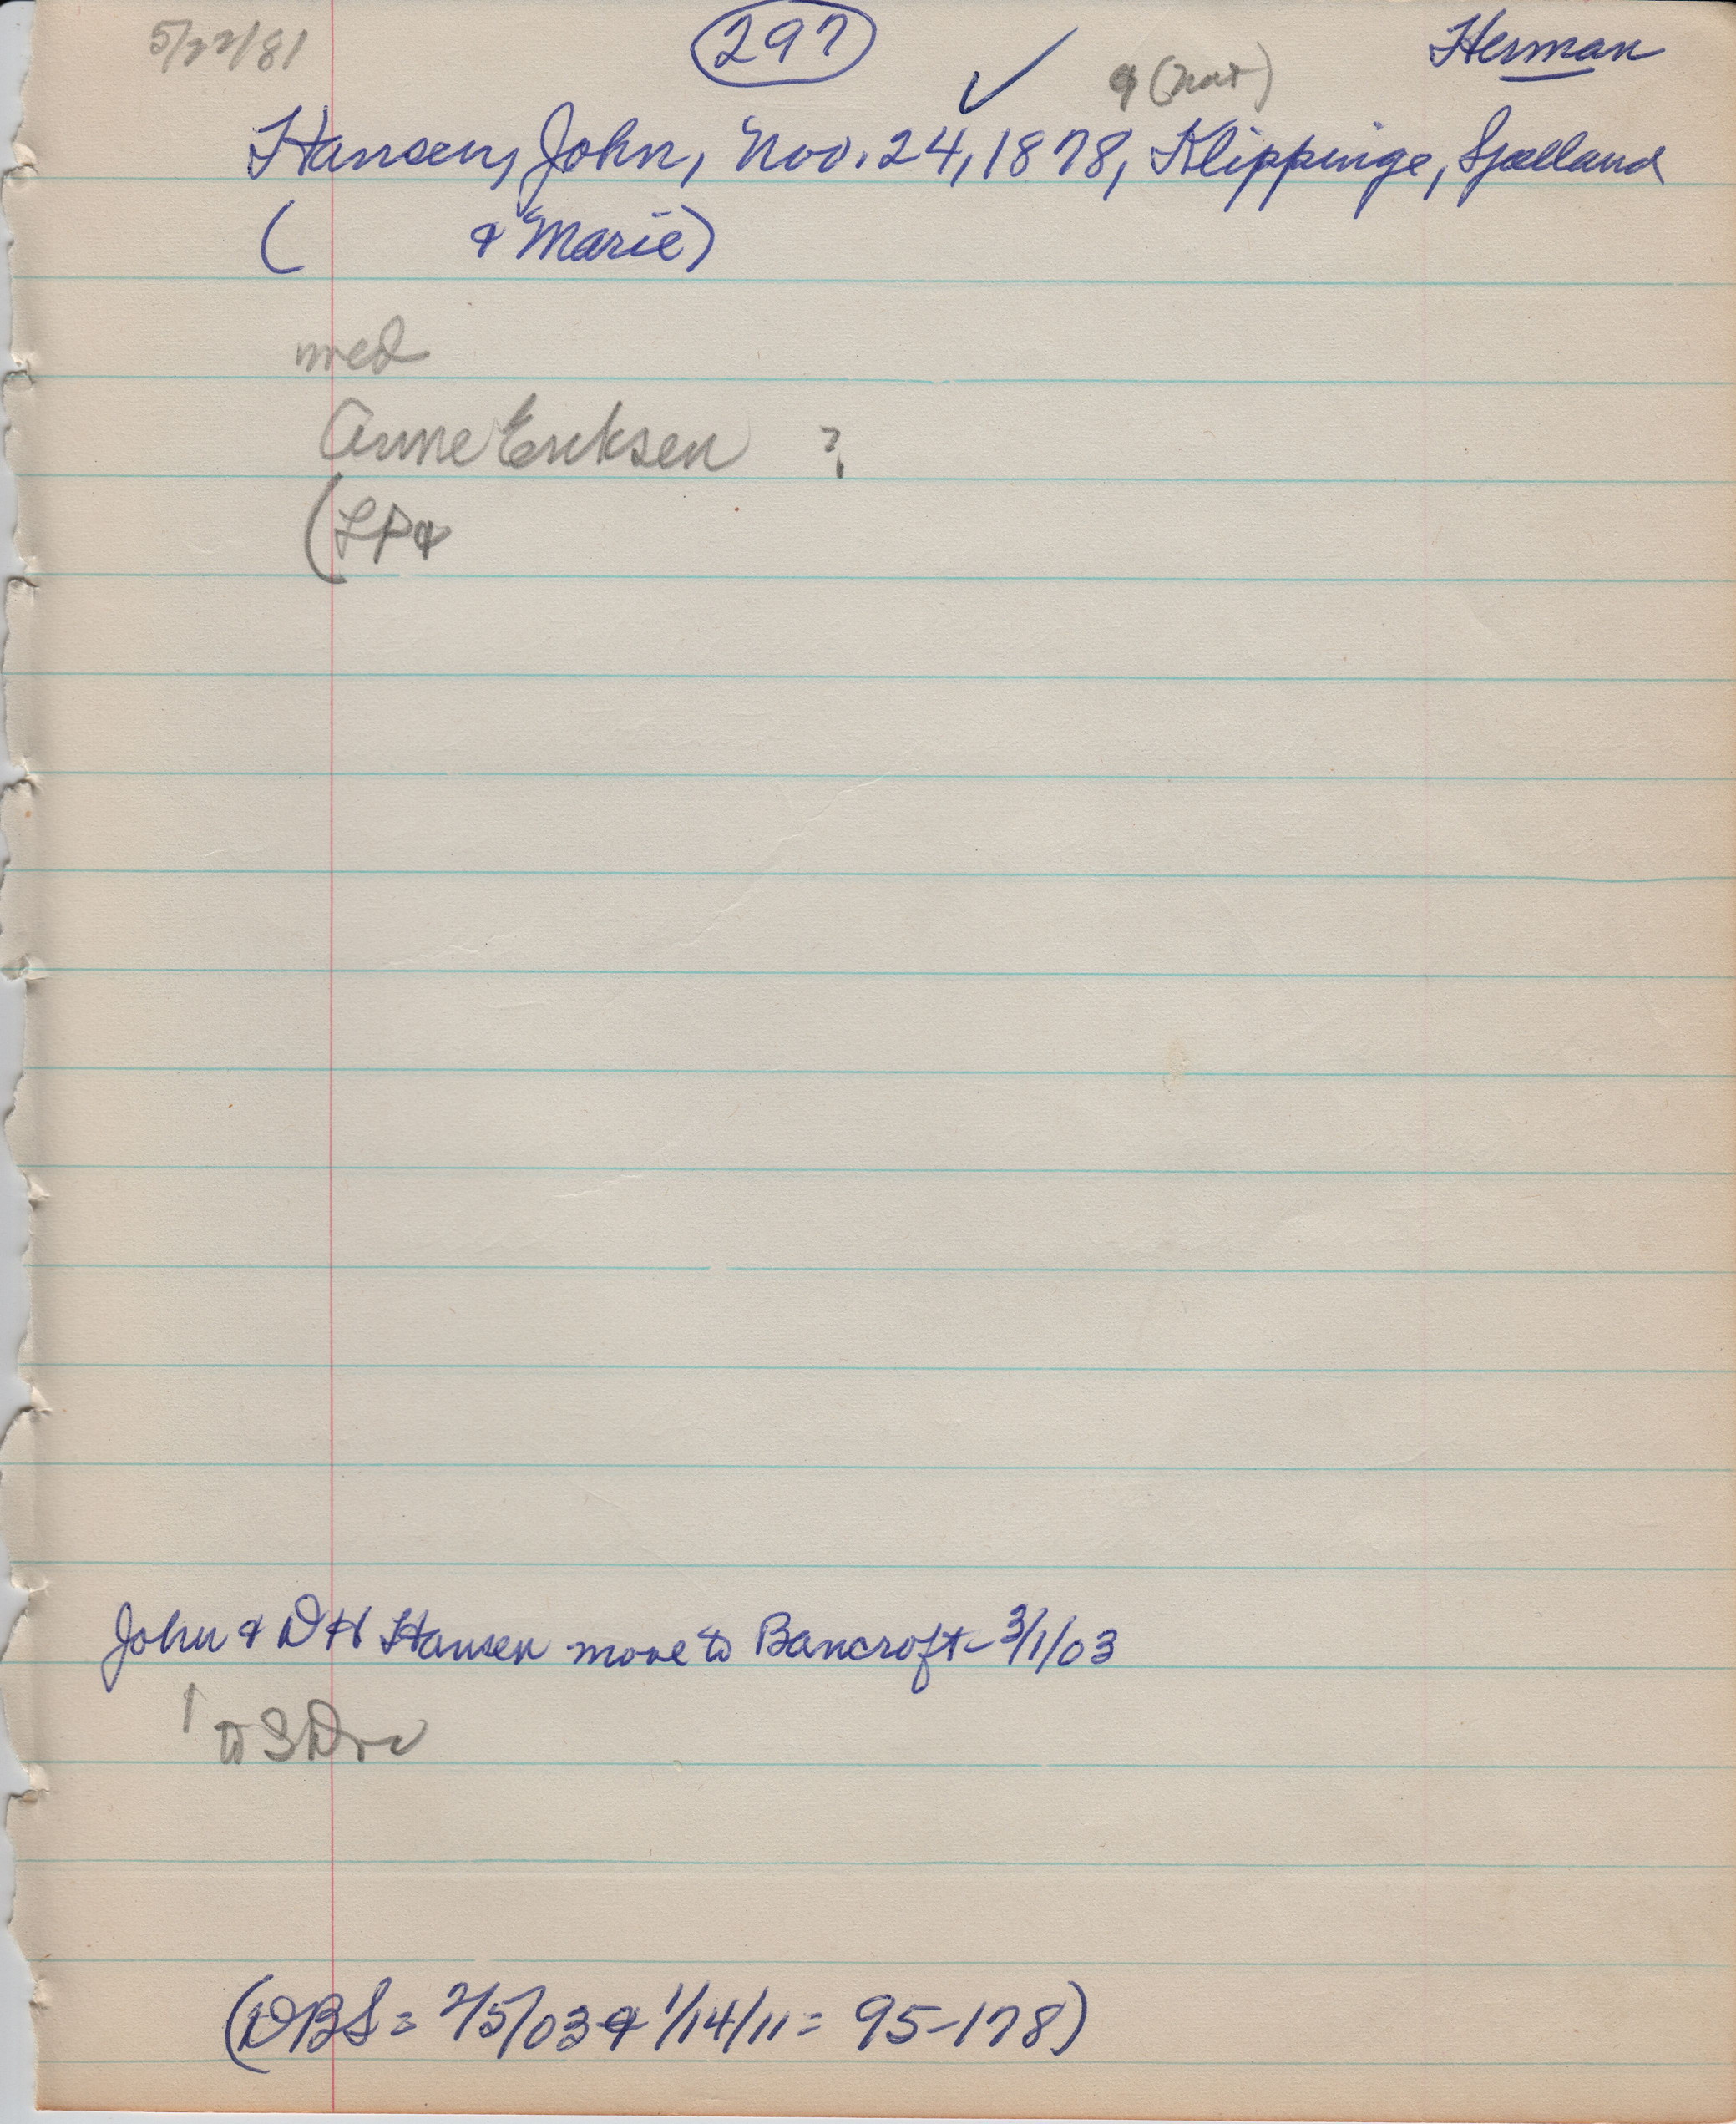 5/22/81 297 Herman
✓ & (nat)
Hansen, John, Nov. 24, 1878, Klippinge, Sjælland
( & Marie)
med
Anne Ericksen ?
(LP &
John & DH Hansen move to Bancroft - 3/1/03
to
(DBS = 2/5/03 & 1/14/11 = 95-178)